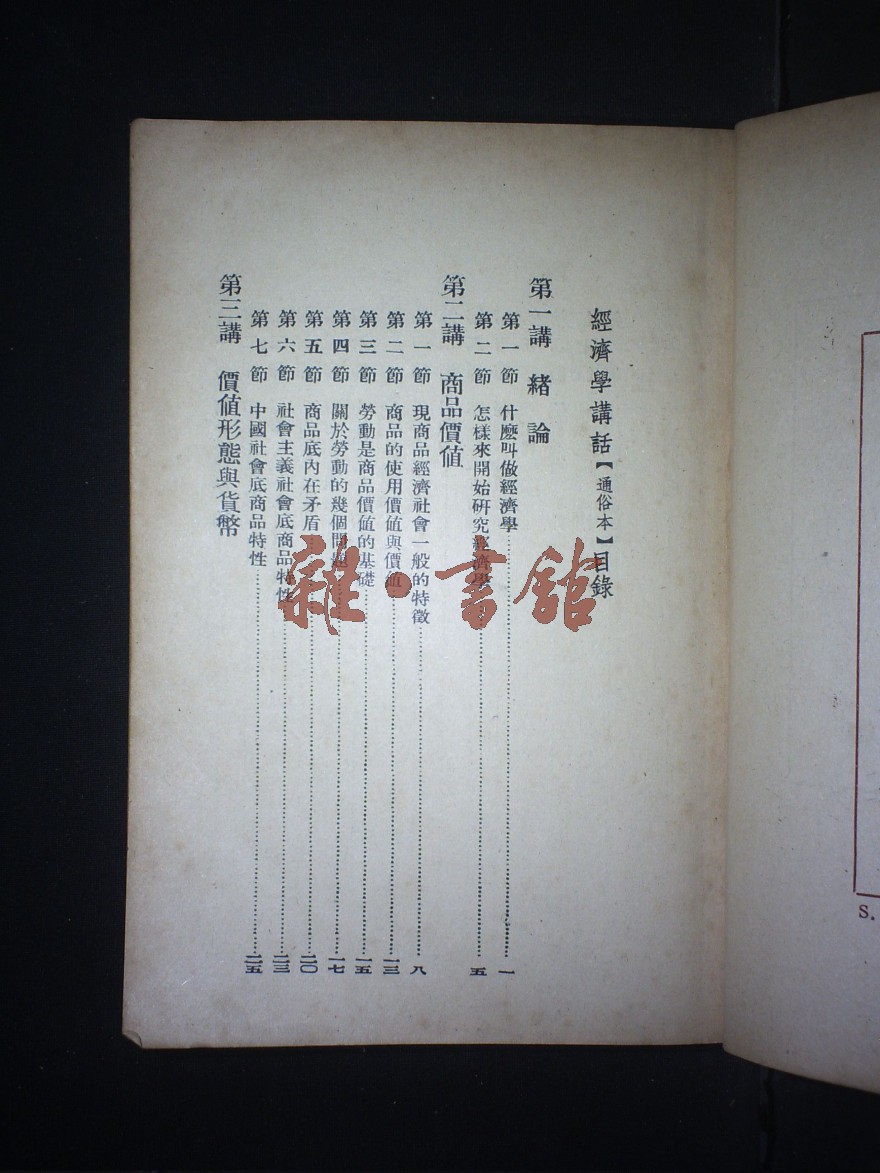 經濟學講話【通俗本】目錄
第一講 緒論
第一節 什麽叫做經濟學……一
第二節 怎樣來開始硏究經濟學……五
第二講 商品價値
第一節 現商品經濟社會一般的特徵……八
第二節 商品的使用價値與價値……一三
第三節 勞動是商品價値的基礎……一五
第四節 關於勞動的幾個問題……一七
第五節 商品底內在矛盾……二〇
第六節 社會主義社會底商品特性……二三
第七節 中國社會底商品特性……二五
第三講 價値形態與貨幣
雜·書館
S.